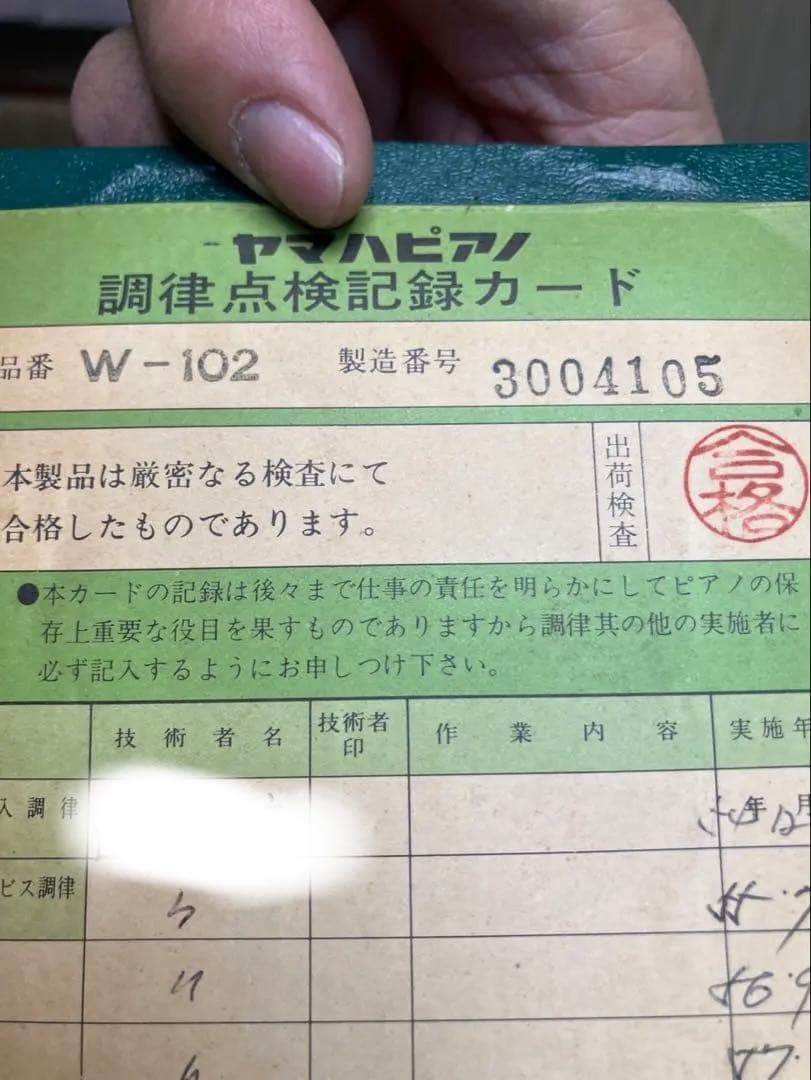 ヤマハピアノ
調律点検記録カード
品番 W-102 製造番号 3004105
本製品は厳密なる検査にて
合格したものであります。
出荷検査
合格
●本カードの記録は後々まで仕事の責任を明らかにしてピアノの保
存上重要な役目を果すものでありますから調律其の他の実施者に
必ず記入するようにお申しつけ下さい。
技術者名 技術者印 作業内容 実施年
入調律 年12月
ビス調律 55.7
56.9
57.